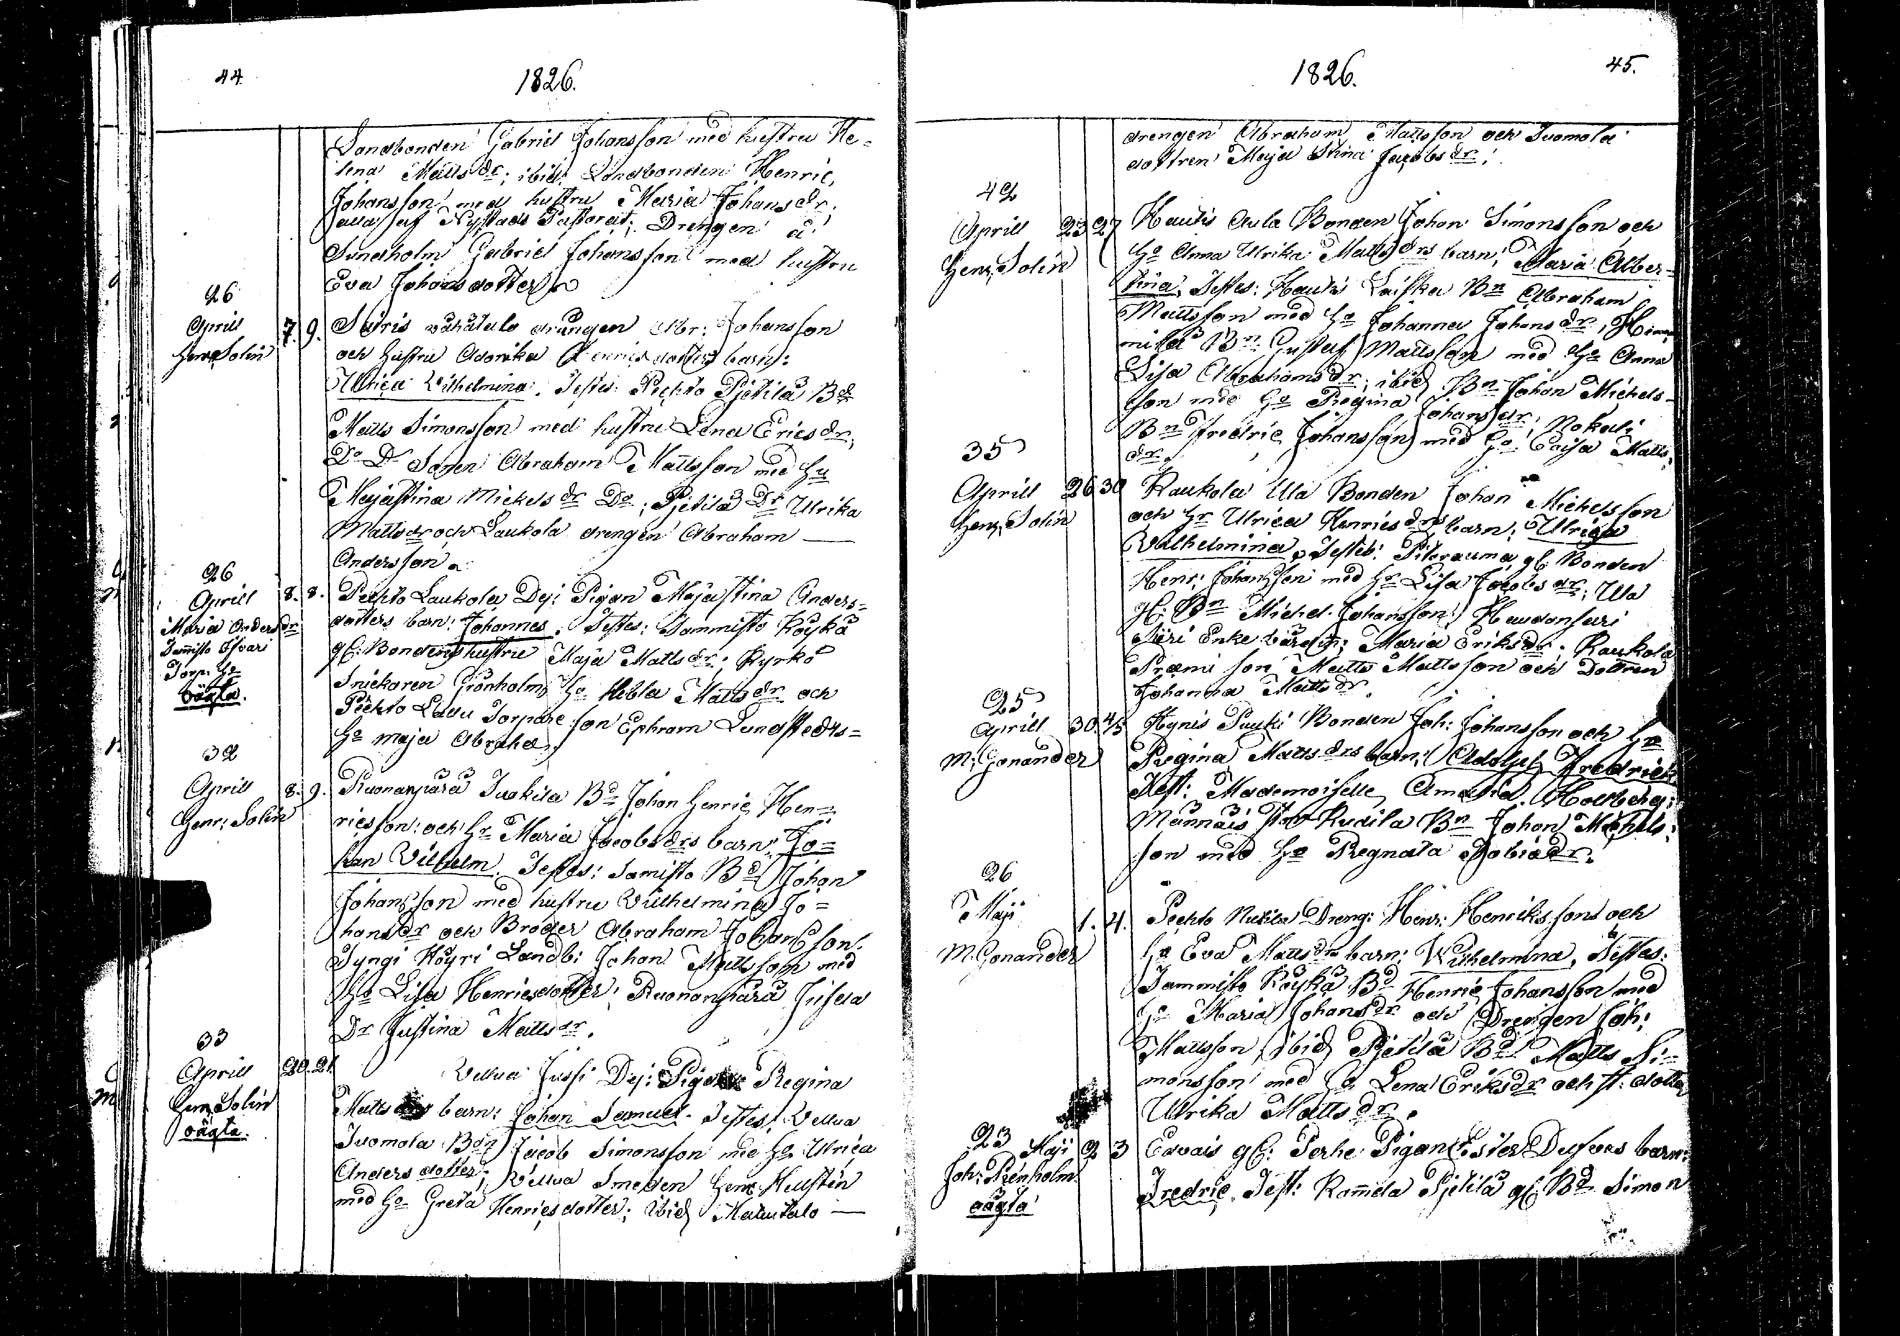 44
1826.
Landbonden Gabriel Johansson med hustru He=
lena Matts dr; ibid: Landbonden Henric
Johansson med hustru Maria Johans dr;
alla af Nystads Pastorat; Drengen å
Sundholm Gabriel Johansson med hustru
Eva Johansdotter
26
Aprill 7. 9.
Henr: Solin
drängen Abr: Johansson
och hustru barn:
Ulrica Wilhelmina. Testes: Pjetilä Bdn
Matts Simonsson med hustru Lena Erics dr;
Do Dr Sonen Abraham Mattsson med Hu
Majastina Mickels dr Do; Pjetilä Dr Ulrika
Matts dr och Laukola drengen Abraham
Andersson
26
Aprill 8. 8.
Maria Anders dr
Torp. Ho
oägta.
Laukola Dej: Pigan Majastina Anders=
dotters barn: Johannes. Testes: Sammisto Köykä
gl: Bondens hustru Maja Matts dr; Kyrko
Snickaren Grönholms Ho Hebla Matts dr och
Torpare son Ephram Lundstedts=
Ho Maja Abrahd.
32
Aprill 8. 9.
Henr: Solin
Ruonanpärä Juokila Bd Johan Henric Hen=
ricsson och Hr Maria Jacobs drs barn: Jo=
han Vilhelm. Testes: Samisto Bd Johan
Johansson med hustru Vilhelmina Jo=
hans dr och Broder Abraham Johansson.
Syngi Köyri Landb: Johan Mattsson med
Ho Lisa Henricsdotter; Ruonanpärä
Dr Justina Matts dr.
33
Aprill 20. 21.
Henr: Solin
oägta.
Vellua Jussi Dej: Pigan Regina
Matts barn: Johan Samuel. Testes: Vellua
Tuomola Bdn Jacob Simonsson med Ho Ulrica
Anders dotter; Vellua Smeden Henr: Hellstén
med Ho Greta Henricsdotter; ibid
1826.
45.
drengen Abraham Mattsson och Tuomola
dottren Maja Stina Jacobs dr;
42
Aprill 23 27
Henr: Solin
Hautis Aula Bonden Johan Simonsson och
Ho Anna Ulrika Matts drs barn; Maria Alber=
tina. Testes: Hautis Laiska Bn Abraham
Mattsson med Ho Johanna Johans dr;
Bn Gustaf Mattsson med Ho Anna
Lisa Abrahams dr; ibid Bn Johan Michels-
son med Ho Regina Johans dr;
Bn Fredric Johansson med Ho Caisa Matts
dr.
35
Aprill 26 30
Henr: Solin
Kaukola Ula Bonden Johan Michelsson
och Hr Ulrica Henrics drs barn: Ulrica
Valhelmina. Testes: Pitorauma gl Bonden
Henr: Johansson med Hr Lisa Jacobs dr; Ula
gl: Bn Michel Johansson;
Siiri Enke Maria Eriks dr. Kaukola
Prami son Matts Mattsson och Dottren
Johanna Matts dr.
25
Aprill 30. 4/5
M: Gonander
Hynis Puuki Bonden Joh: Johansson och Hr
Regina Matts drs barn: Adolph Fredric
Test: Mademoiselle Amalia Holmberg;
Männäis Rudila Bn Johan Michels:
son med Ho Regnata Tobiæ dr.
26
Maji 1. 4.
M: Gonander
Nukila Dreng: Henr: Henriksson och
Ho Eva Matts drs barn: Wilhelmina. Testes:
Sammisto Köykä Bd Henric Johansson med
Ho Maria Johans dr och Drengen Joh:
Mattsson, ibid Pjetilä Bd Matts Si=
monsson med Ho Lena Eriks dr och st: dotter
Ulrika Matts dr.
23
Maji 2 3
Joh: Renholm
oägta
Edvais gl: Perhe Pigan Ester Dufvas barn:
Fredric. Test: Pjetilä gl Bd Simon